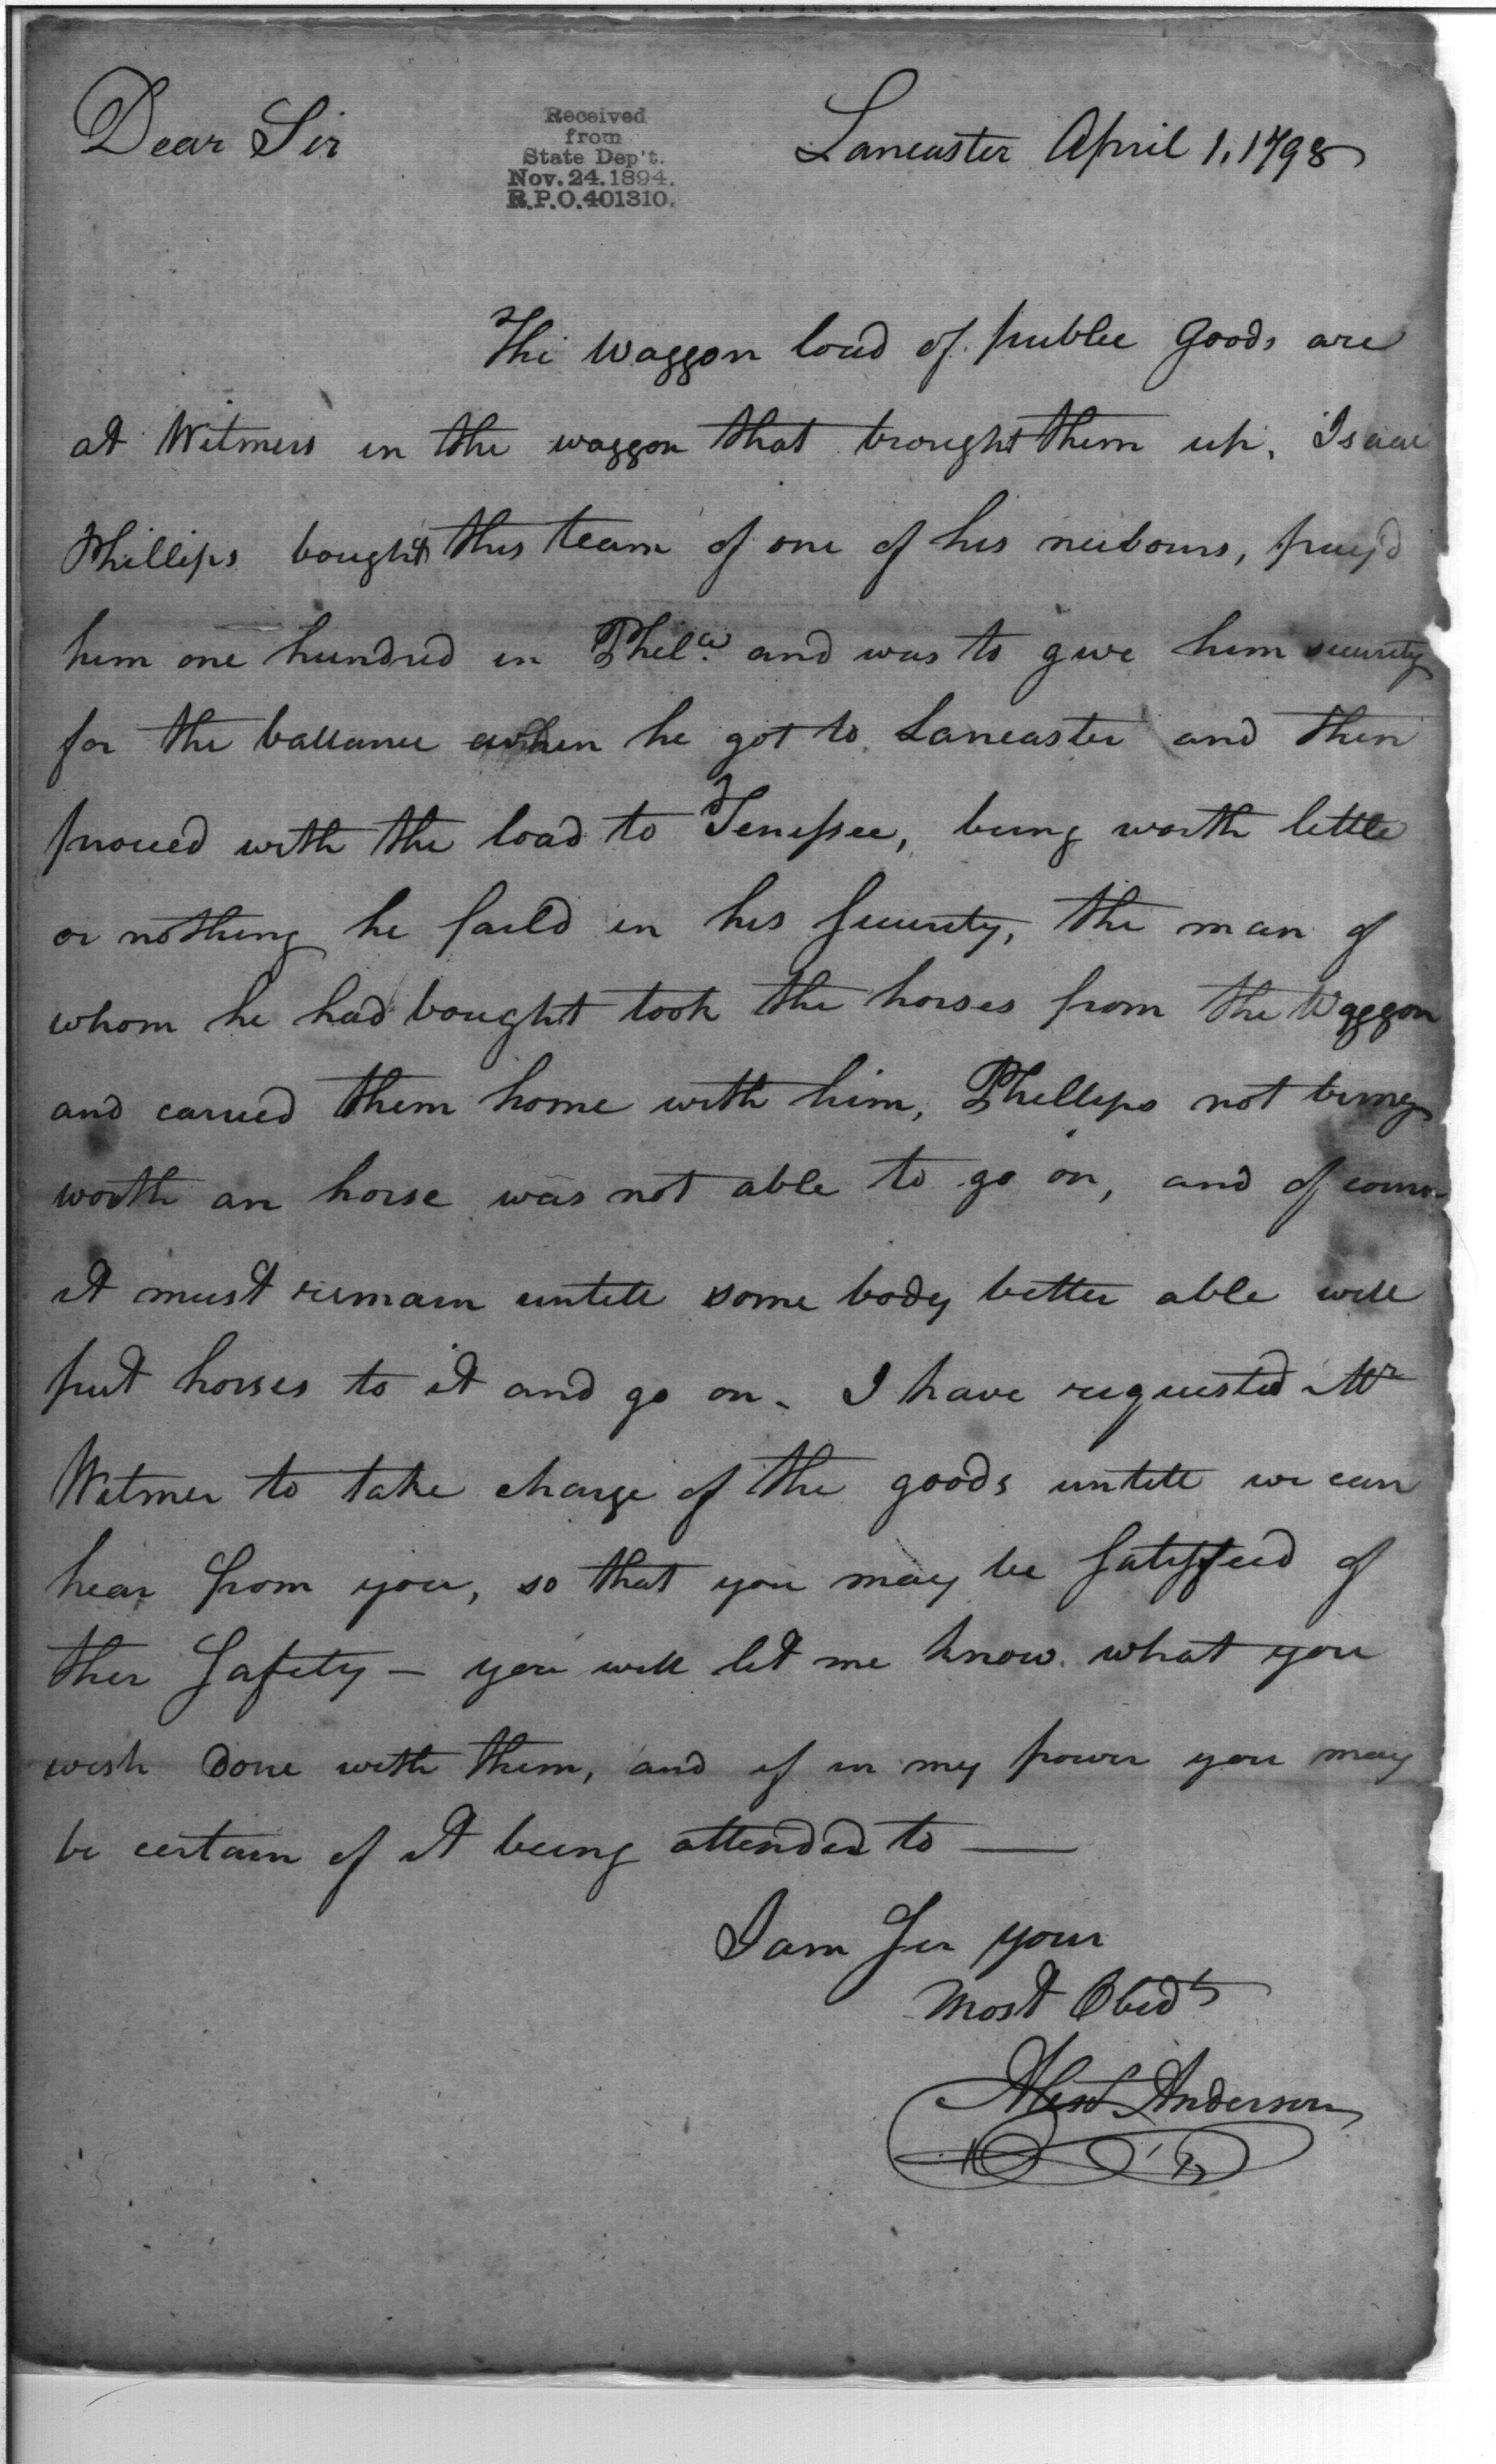 Dear Sir
Received
from
State Dep't.
Nov. 24. 1894.
R.P.O. 401310.
Lancaster April 1, 1798
The Waggon load of public Goods are
at Witmers in the waggon that brought them up, Isaac
Phillips bought this team of one of his neibours, pay'd
him one hundred in Phila. and was to give him security
for the ballance when he got to Lancaster and then
proceed with the load to Tenessee, being worth little
or nothing he faild in his Security, the man of
whom he had bought took the horses from the Waggon
and carried them home with him, Phillips not being
worth an horse was not able to go on, and of course
it must remain untill some body better able will
put horses to it and go on. I have requested Mr
Witmer to take charge of the goods untill we can
hear from you, so that you may be Satisfied of
ther Safety — you will let me know what you
wish done with them, and if in my power you may
be certain of it being attended to —
I am Sir your
Most Obedt
Alexr Anderson